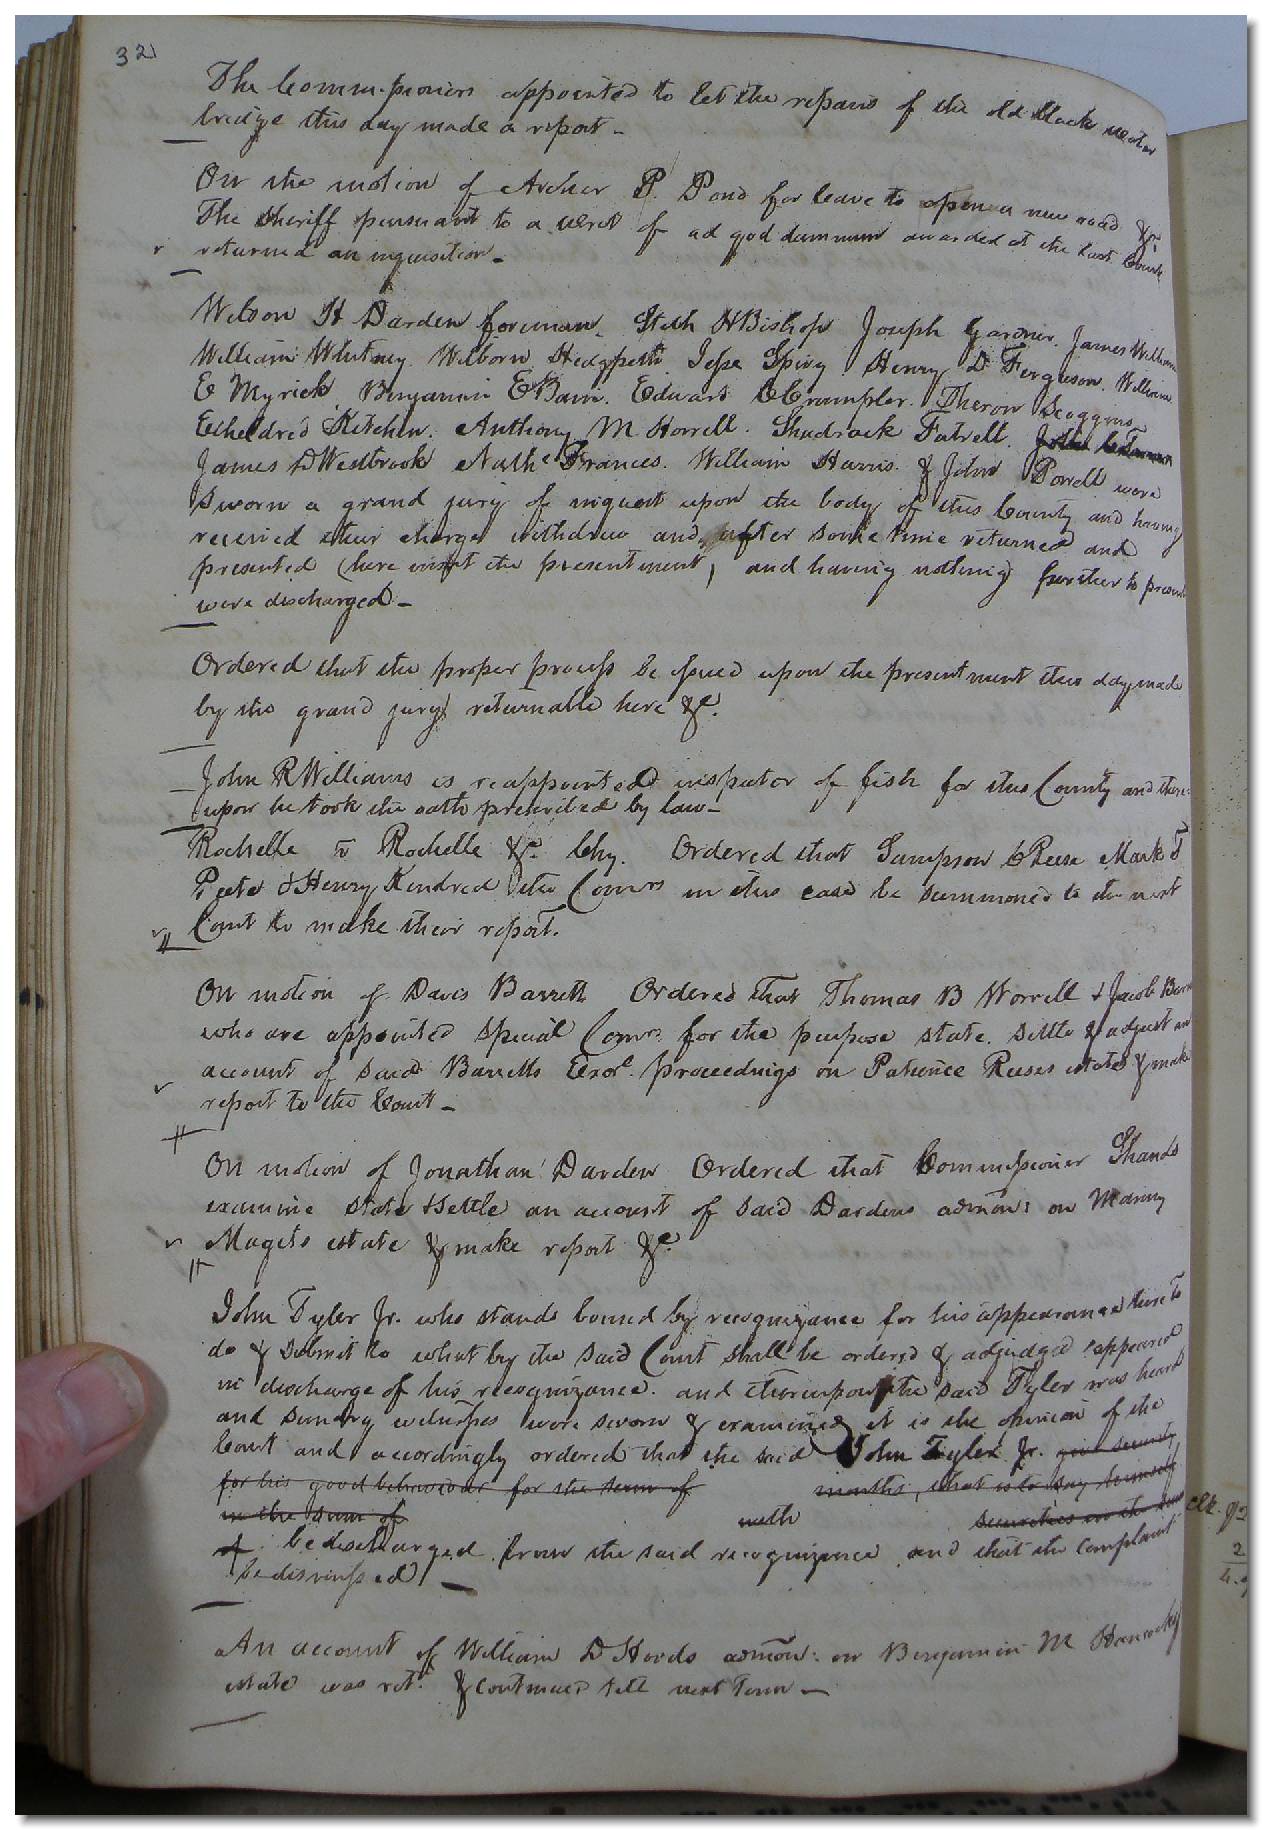 32
The Commissioners appointed to let the repairs of the old black water
bridge this day made a report –
On the motion of Archer P. Pond for leave to open a new road &c
The Sheriff pursuant to a writ of ad qod damnum awarded at the last Court
returned an inquisition. –
Wilson H Darden foreman. Sith H Bishop Joseph Gardner. James William
William Whitney. Wilborn Hedgpeth Jesse Spivy. Henry D Ferguson. William
E Myrick. Benjamin E Bain. Edward C Crumpler. Theron Scoggins
Etheldred Kitchen. Anthony M Worrell. Shadrack Futrell.
James D Westbrook Nathl Frances. William Harris. & John Powell were
sworn a grand jury of inquest upon the body of this County and having
received their charge withdrew and after some time returned and
presented (here insert the presentment, and having nothing further to present
were discharged –
Ordered that the proper process be issued upon the presentment this day made
by the grand jury returnable here &c.
John R Williams is reappointed inspector of fish for this County and there-
upon he took the oath prescribed by law –
Rochelle v Rochelle &c. Chy. Ordered that Sampson C Reese Mark T
Peete & Henry Kindred the Comrs in this case be summoned to the next
Court to make their report.
On motion of Davis Barrett Ordered that Thomas B Worrell & Jacob Barn
who are appointed special Comrs. for the purpose state. settle & adjust an
account of said Barretts Exor. proceedings on Patience Reeses estate & make
report to the Court –
On motion of Jonathan Darden Ordered that Commissioner Shands
examine state & settle an account of said Dardens admon: on Manny
Magets estate & make report &c.
John Tyler Jr. who stands bound by recognizance for his appearance here to
do & submit to what by the said Court shall be ordered & adjudged appeared
in discharge of his recognizance. and thereupon the said Tyler was heard
and sundry witnesses were sworn & examined it is the opinion of the
Court and accordingly ordered that the said John Tyler Jr. give security
for his good behaviour for the term of months, that is to say himself
in the sum of with securities in the sum
of be discharged from the said recognizance and that the complaint
be dismissed –
An account of William D Hoods admon: on Benjamin M Hancocks
estate was ret. & continued till next Term –
Clk.
2